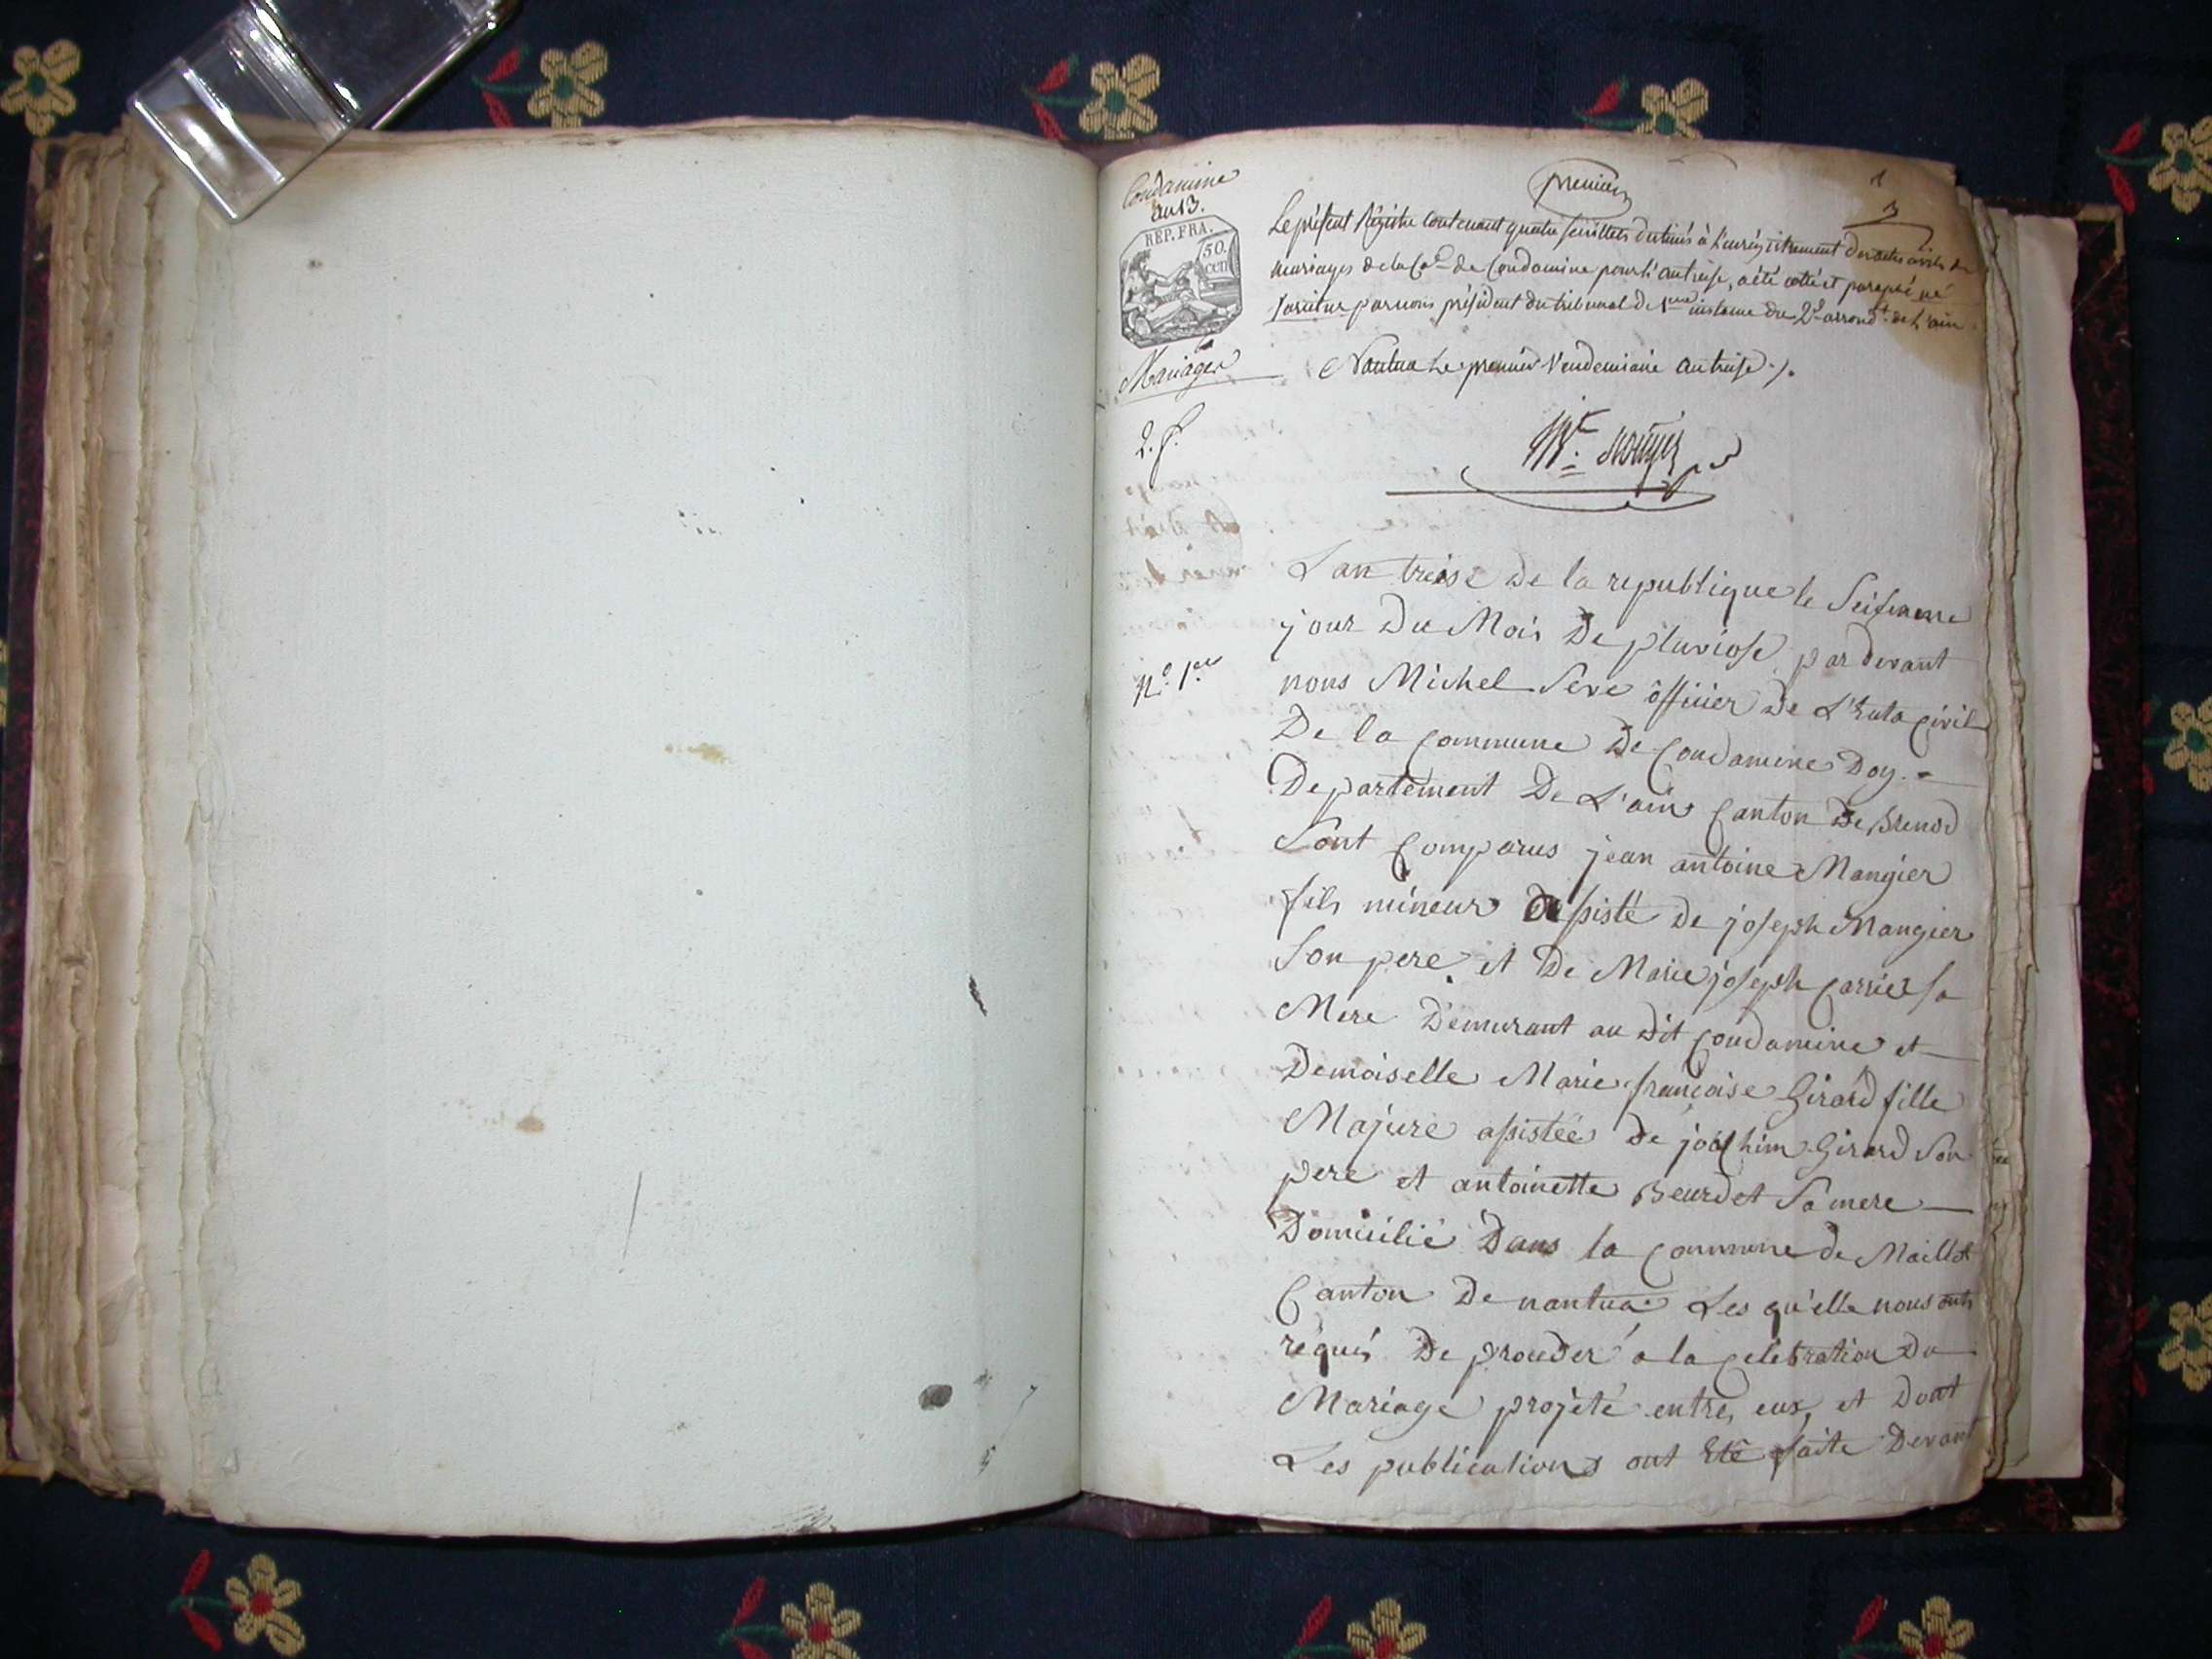 Condamine
an 13.
REP. FRA.
50.
cen
Mariages
2. f.
premier
1
Le présent Régistre contenant quatre feuillets destinés à l'enrégistrement des actes civils de
mariages de la Cne de Condamine pour l'an treise, a été cotté et paraphé ne
varietur par nous président du tribunal de 1ere instance du 2e arrondt de l'ain
Nantua Le premier Vendemiaire an treise ./.
N.° 1.er
L'an treise De la republique le Seiseme
jour Du Mois De pluviose par devant
nous Michel Seve officier De L'Etat Civil
De la Commune De Condamine Doy. -
Departement De L'ain Canton De Brenod
Sont Comparus jean antoine Mangier
fils mineur assisté De joseph Mangier
Son pere et De Marie joseph Carrier Sa
Mere Demurant au Dit Condamine et
Demoiselle Marie françoise Girard fille
Majure assistée De joachim Girard Son
pere et antoinette Beurdet Sa mere
Domicilié Dans la Commune de Maillat
Canton De nantua. Les qu'elle nous onts
réquis De proceder a la Celebration Du
Mariage projeté entre eux, et Dont
Les publications ont Eté faite Devant